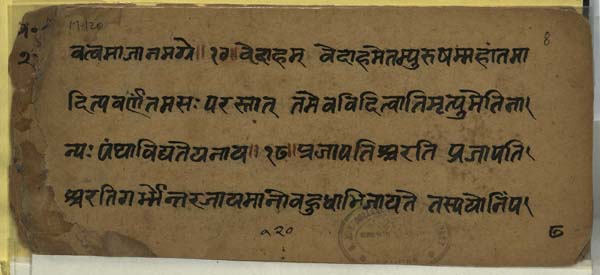 M-120
8
वत्वमाजानमग्रे॥१७॥वेदाहम् वेदाहमेतम्पुरुषम्महांतमा
दित्यवर्णंतमसः परस्तात् तमेवविदित्वातिमृत्युमेतिना।
न्यः पंथाविद्यतेयनाय॥१८॥प्रजापतिश्चरति प्रजापति।
श्चरतिगर्ब्भेन्तरजायमानोबहुधाभिजायते तस्ययोनिंप।
१२०
८